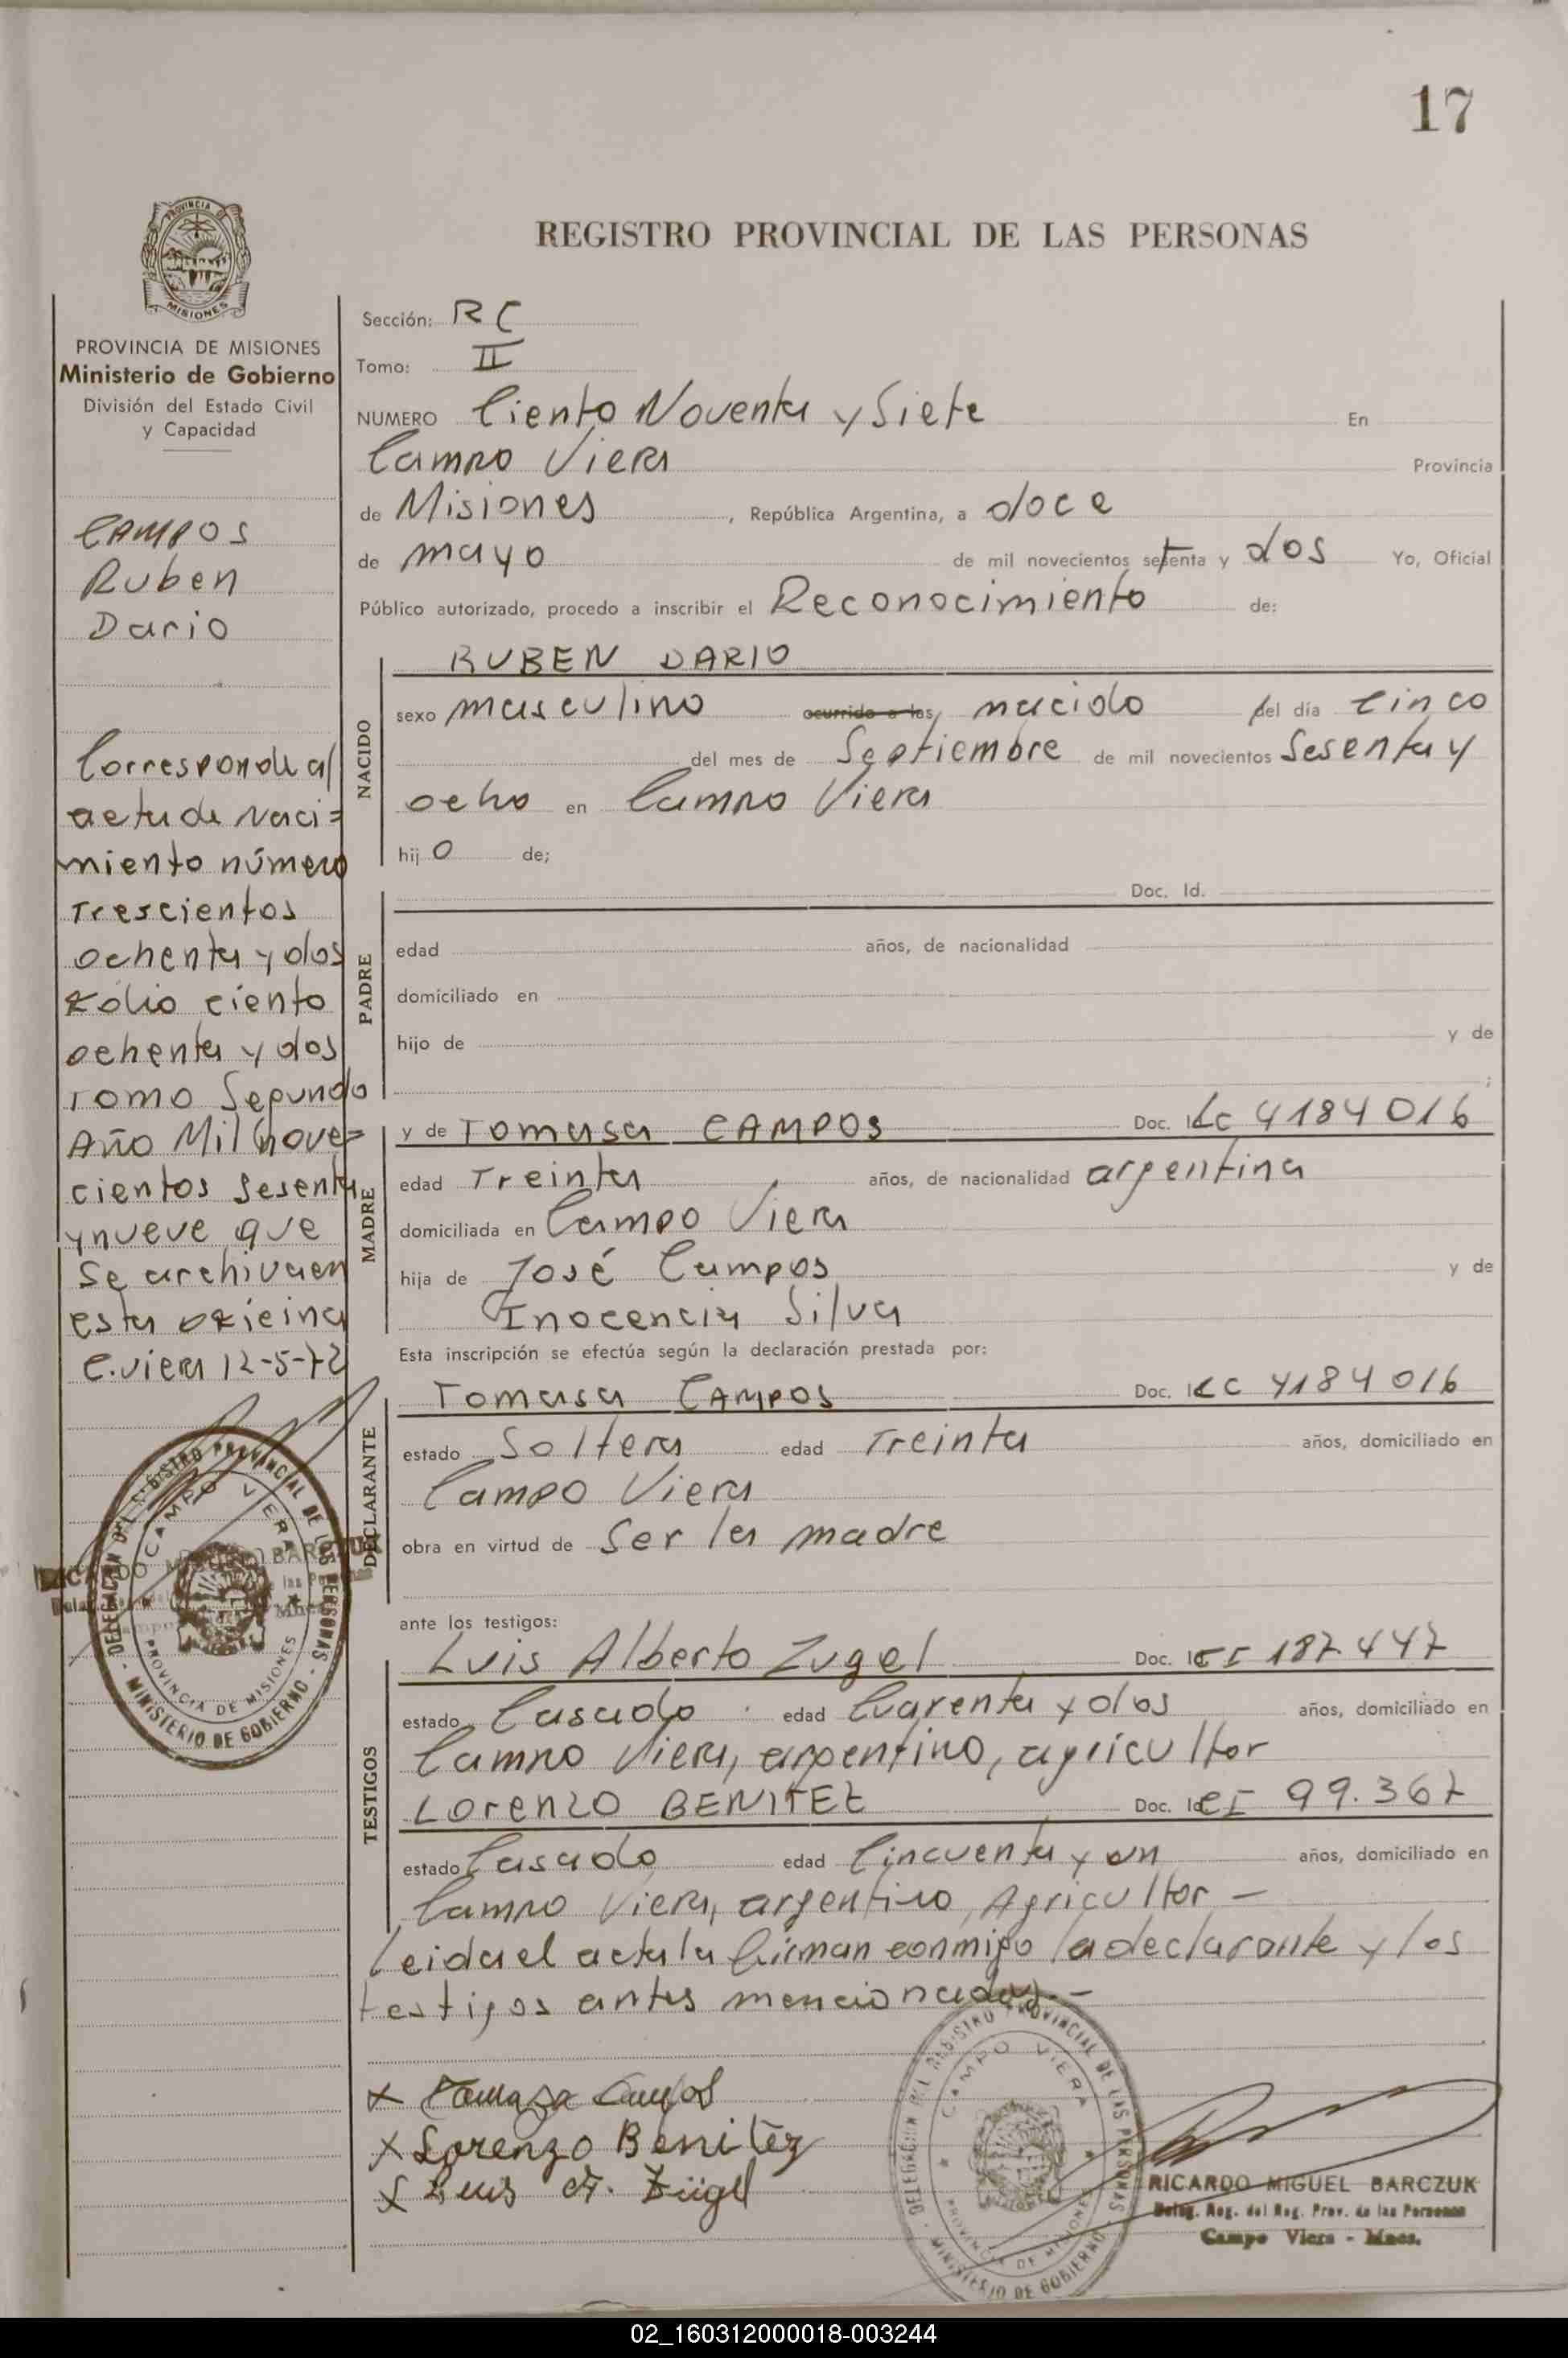 17
REGISTRO PROVINCIAL DE LAS PERSONAS
PROVINCIA DE MISIONES
Ministerio de Gobierno
División del Estado Civil
y Capacidad
CAMPOS
Ruben
Dario
Corresponde al
acta de Naci=
miento número
Trescientos
ochenta y dos
Folio ciento
ochenta y dos
Tomo Segundo
Año Mil nove=
cientos Sesenta
y nueve que
Se archiva en
esta oficina
C. Viera 12-5-72
Sección: RC
Tomo: II
NUMERO Ciento Noventa y Siete En
Campo Viera Provincia
de Misiones, República Argentina, a doce
de mayo de mil novecientos setenta y dos Yo, Oficial
Público autorizado, procedo a inscribir el Reconocimiento de:
NACIDO
RUBEN DARIO
sexo masculino ocurrido a las nacido del día Cinco
del mes de Septiembre de mil novecientos Sesenta y
ocho en Campo Viera
hijo de;
PADRE
Doc. Id.
edad años, de nacionalidad
domiciliado en
hijo de y de
;
MADRE
y de Tomasa CAMPOS Doc. LC 4184016
edad Treinta años, de nacionalidad argentina
domiciliada en Campo Viera
hija de José Campos y de
Inocencia Silva
Esta inscripción se efectúa según la declaración prestada por:
DECLARANTE
Tomasa CAMPOS Doc. LC 4184016
estado Soltera edad Treinta años, domiciliado en
Campo Viera
obra en virtud de Ser la madre
ante los testigos:
TESTIGOS
Luis Alberto Zugel Doc. CI 187447
estado Casado edad Cuarenta y dos años, domiciliado en
Campo Viera, argentino, agricultor
Lorenzo BENITEZ Doc. CI 99.367
estado Casado edad Cincuenta y un años, domiciliado en
Campo Viera, argentino, Agricultor -
Leida el acta la firman conmigo la declarante y los
testigos antes mencionados.-
x Tomasa Campos
x Lorenzo Benitez
x Luis A. Zügel
DELEGACION DEL REGISTRO PROVINCIAL DE LAS PERSONAS - MINISTERIO DE GOBIERNO -
CAMPO VIERA
PROVINCIA DE MISIONES
DELEGACION DEL REGISTRO PROVINCIAL DE LAS PERSONAS - MINISTERIO DE GOBIERNO
CAMPO VIERA
PROVINCIA DE MISIONES
RICARDO MIGUEL BARCZUK
Deleg. Reg. del Reg. Prov. de las Personas
Campo Viera - Mnes.
02_160312000018-003244